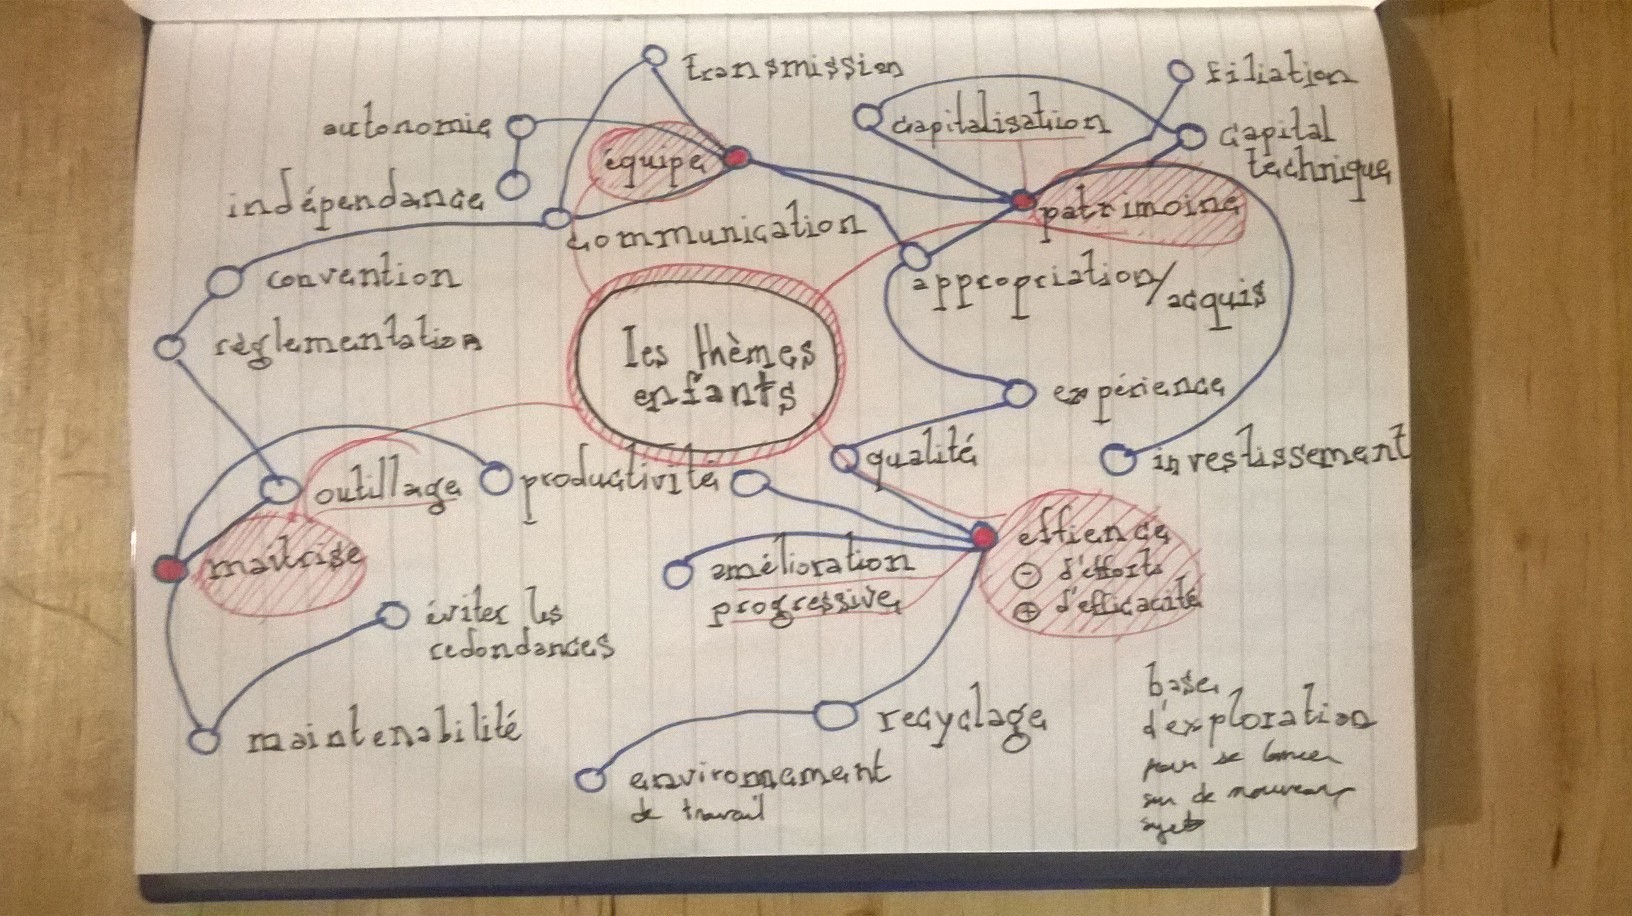 transmission
filiation
autonomie
équipe
capitalisation
capital
technique
indépendance
patrimoine
communication
convention
appropriation/
acquis
règlementation
les thèmes
enfants
expérience
qualité
investissement
outillage
productivité
maitrise
effience
⊖ d'efforts
⊕ d'efficacité
amélioration
progressive
éviter les
redondances
maintenabilité
recyclage
environnement
de travail
base
d'exploration
pour se lancer
sur de nouveaux
sujets